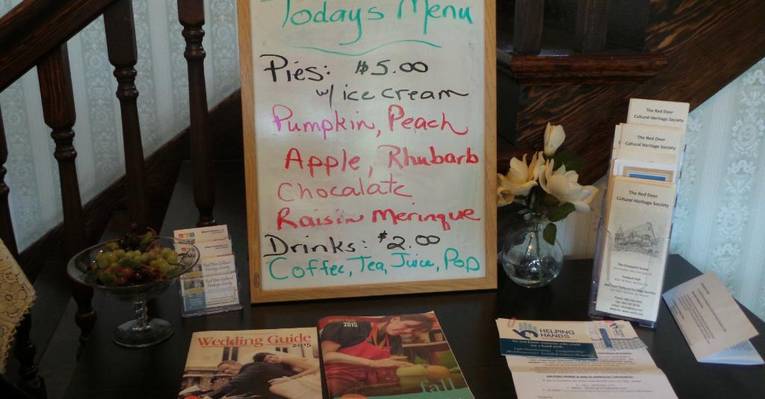 Today's Menu
Pies: $5.00
w/ ice cream
Pumpkin, Peach
Apple, Rhubarb
Chocalate
Raisin Meringue
Drinks: $2.00
Coffee, Tea, Juice, Pop
The Red Deer
Cultural Heritage Society
The Red Deer
Cultural Heritage Society
The Red Deer
Cultural Heritage Society
Wedding Guide
2015
2015
fall
HELPING
HANDS